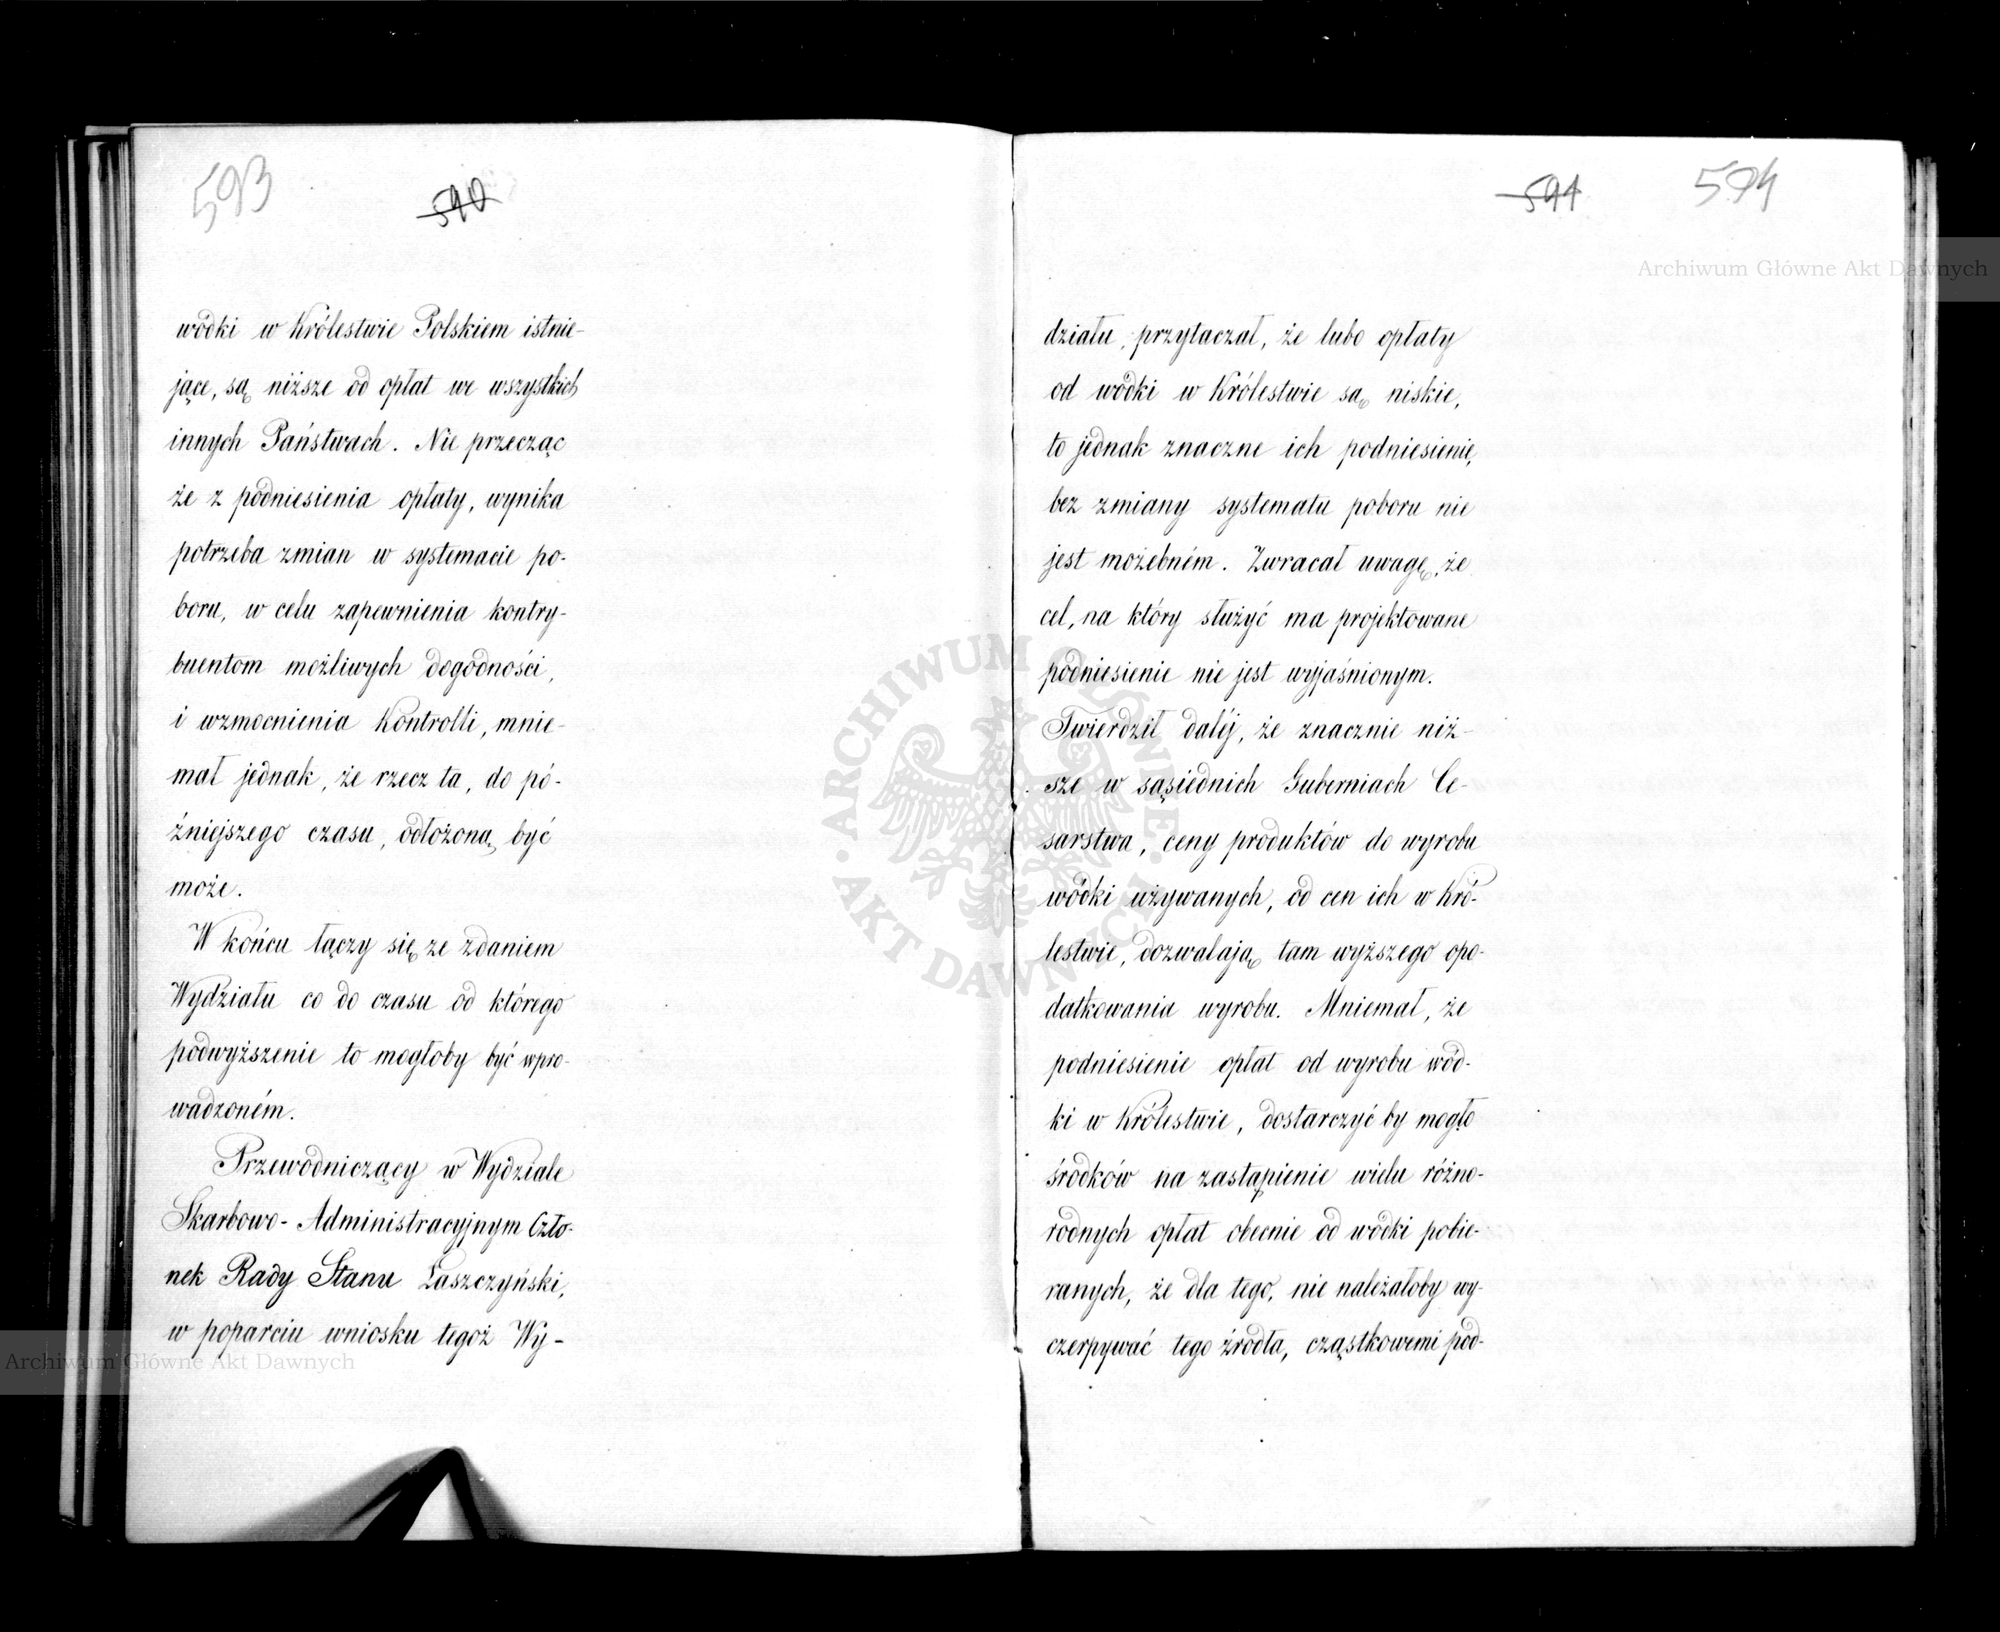 593
590
wódki w Królestwie Polskiem istnie-
jące, są niższe od opłat we wszystkich
innych Państwach. Nie przecząc
że z podniesienia opłaty, wynika
potrzeba zmian w systemacie po-
boru, w celu zapewnienia kontry-
buentom możliwych dogodności,
i wzmocnienia Kontrolli, mnie-
mał jednak, że rzecz ta, do pó-
źniejszego czasu, odłożoną być
może.
W końcu łączy się ze zdaniem
Wydziału co do czasu od którego
podwyższenie to mogłoby być wpro-
wadzoném.
Przewodniczący w Wydziale
Skarbowo-Administracyjnym Czło-
nek Rady Stanu Łaszczyński,
w poparciu wniosku tegoż Wy-
591
594
działu, przytaczał, że lubo opłaty
od wódki w Królestwie są niskie,
to jednak znaczne ich podniesienie,
bez zmiany systematu poboru nie
jest możebném. Zwracał uwagę, że
cel, na który służyć ma projektowane
podniesienie nie jest wyjaśnionym.
Twierdził daléj, że znacznie niż-
sze w sąsiednich Guberniach Ce-
sarstwa, ceny produktów do wyrobu
wódki używanych, od cen ich w Kró-
lestwie, dozwalają tam wyższego opo-
datkowania wyrobu. Mniemał, że
podniesienie opłat od wyrobu wód-
ki w Królestwie, dostarczyć by mogło
środków na zastąpienie wielu różno-
rodnych opłat obecnie od wódki pobie-
ranych, że dla tego, nie należałoby wy-
czerpywać tego źródła, cząstkowemi pod-
Archiwum Główne Akt Dawnych
Archiwum Główne Akt Dawnych
ARCHIWUM GŁÓWNE AKT DAWNYCH